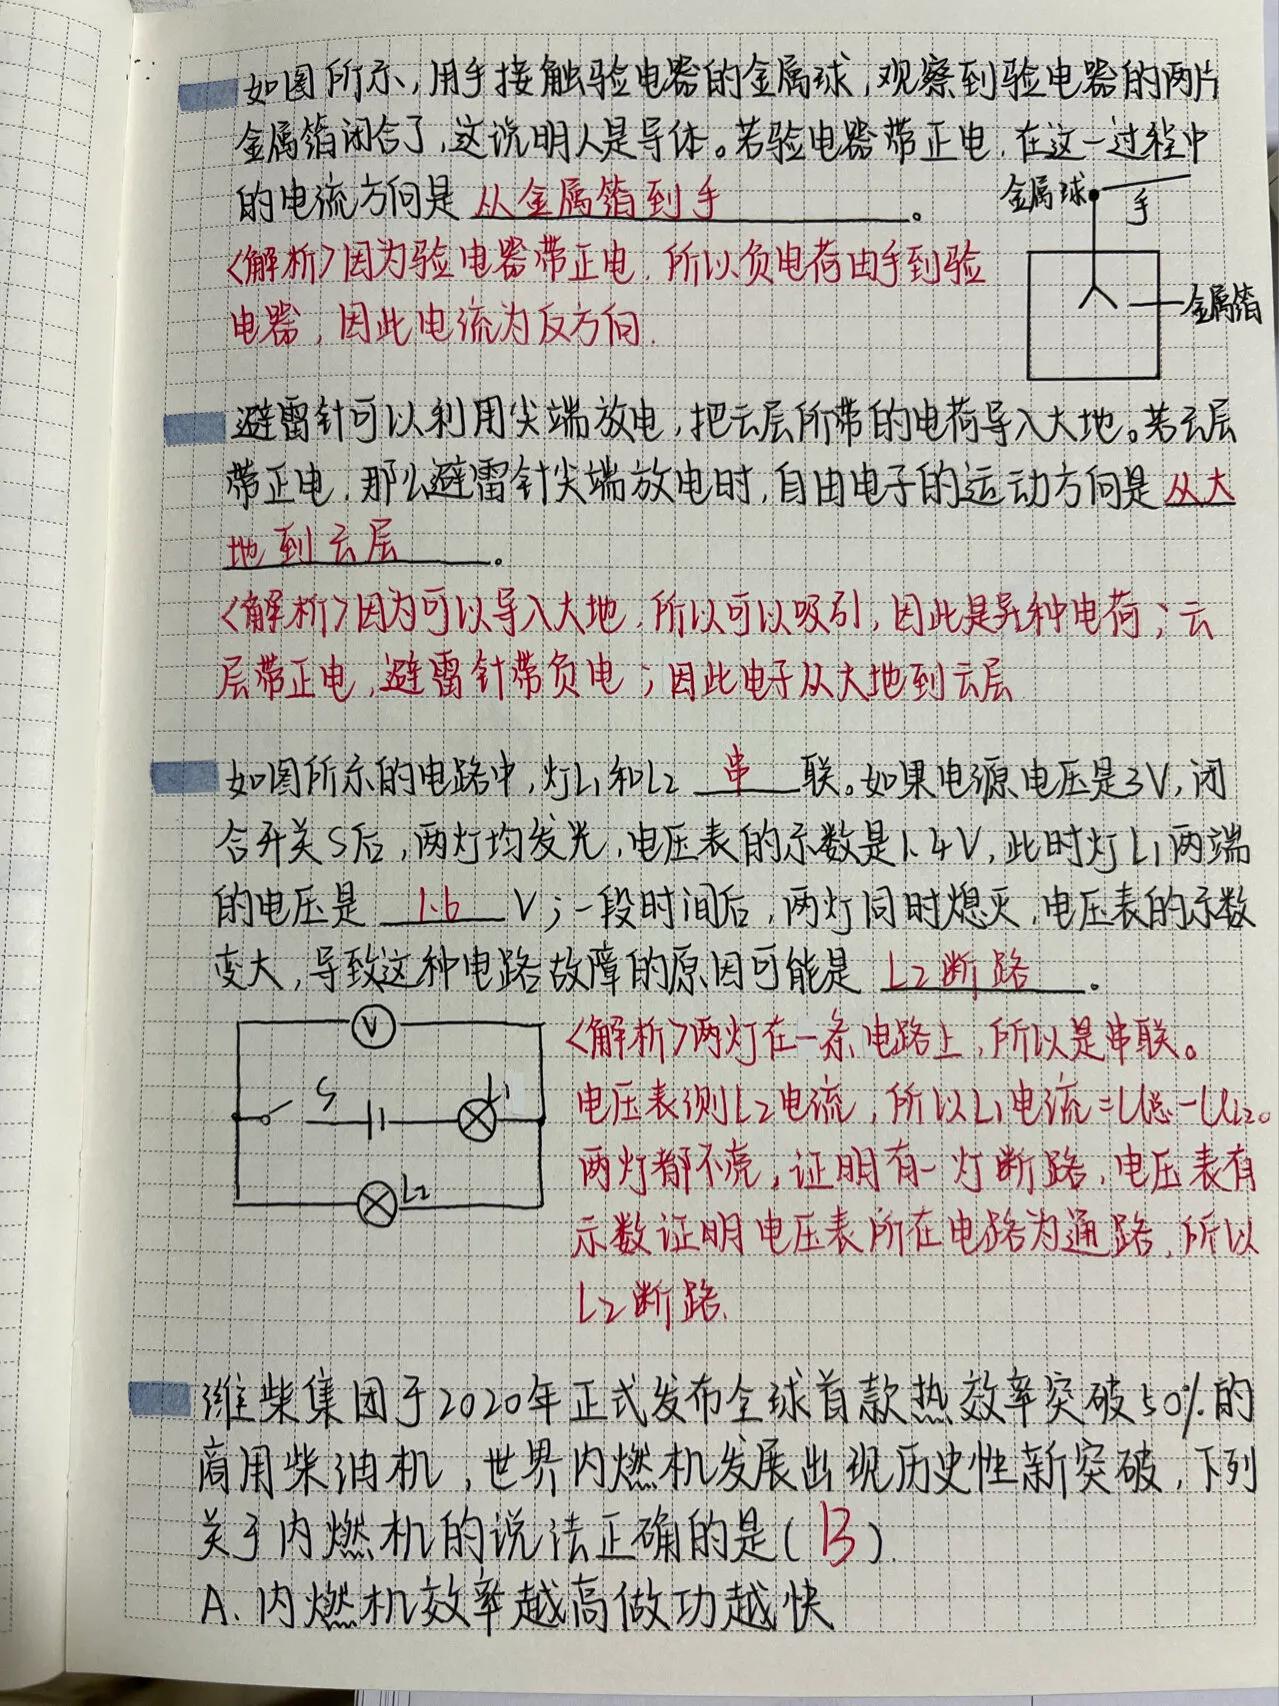 如图所示,用手接触验电器的金属球,观察到验电器的两片
金属箔闭合了,这说明人是导体。若验电器带正电,在这一过程中
的电流方向是 从金属箔到手 。
金属球
手
金属箔
<解析>因为验电器带正电,所以负电荷由手到验
电器,因此电流为反方向.
避雷针可以利用尖端放电,把云层所带的电荷导入大地。若云层
带正电,那么避雷针尖端放电时,自由电子的运动方向是 从大
地到云层 。
<解析>因为可以导入大地,所以可以吸引,因此是异种电荷;云
层带正电,避雷针带负电;因此电子从大地到云层
如图所示的电路中,灯L1和L2 串 联。如果电源电压是3V,闭
合开关S后,两灯均发光,电压表的示数是1.4V,此时灯L1两端
的电压是 1.6 V;一段时间后,两灯同时熄灭,电压表的示数
变大,导致这种电路故障的原因可能是 L2断路 。
V
S
L1
L2
<解析>两灯在一条电路上,所以是串联。
电压表测L2电流,所以L1电流=U总-UL2。
两灯都不亮,证明有一灯断路,电压表有
示数证明电压表所在电路为通路,所以
L2断路.
潍柴集团于2020年正式发布全球首款热效率突破50%的
商用柴油机,世界内燃机发展出现历史性新突破,下列
关于内燃机的说法正确的是(B).
A.内燃机效率越高做功越快